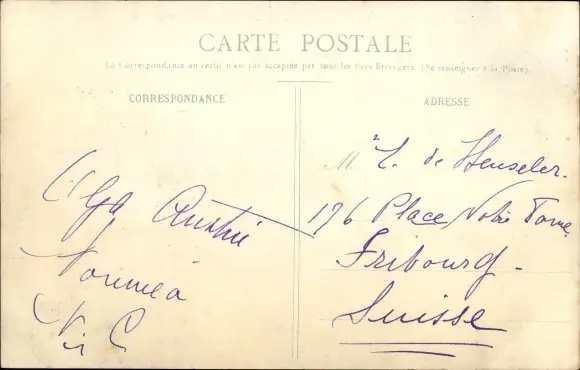 CARTE POSTALE
La Correspondance au recto n'est pas acceptée par tous les Pays Etrangers. (Se renseigner à la Poste).
CORRESPONDANCE
ADRESSE
Olga Austin
Nouméa
N. C
M L. de Henseler.
176 Place Notre Dame
Fribourg -
Suisse